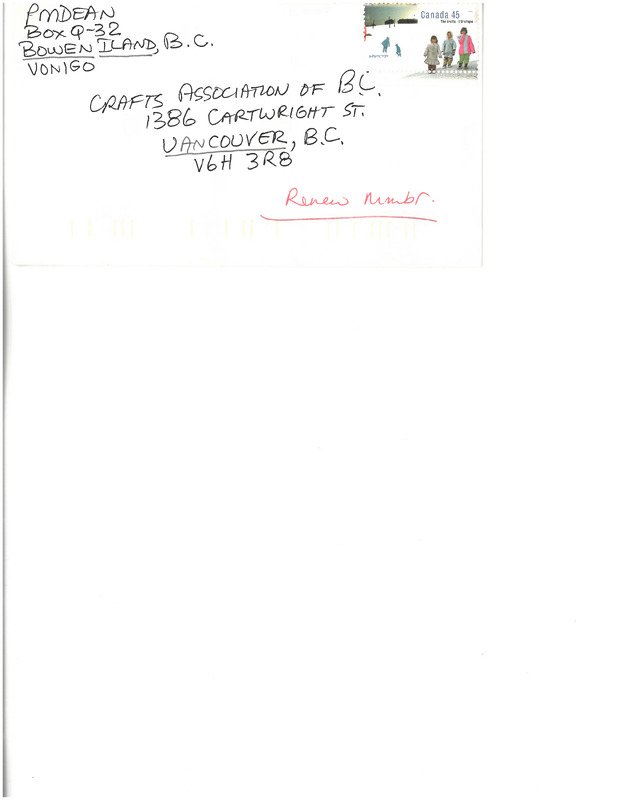 PMDEAN
BOX Q-32
BOWEN ILAND, B.C.
VON1GO
Canada 45
CRAFTS ASSOCIATION OF B.C.
1386 CARTWRIGHT ST.
VANCOUVER, B.C.
V6H 3R8
Renew Mmbr.